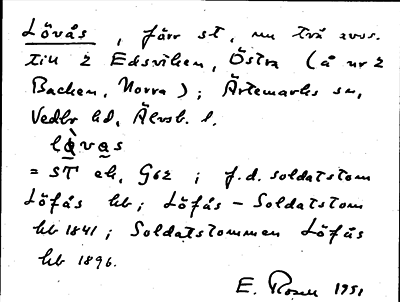 Lövås, förr st, nu två avs.
till 2 Edsviken, Östra (å nr 2
Backen, Norra); Ärtemarks sn,
Vedbo hd, Älvsb. l.
làvas
= ST ek. G62; f.d. soldatstom
Löfås hb; Löfås - Soldatstom
hb 1841; Soldatstommen Löfås
hb 1896.
E. Rosell 1951